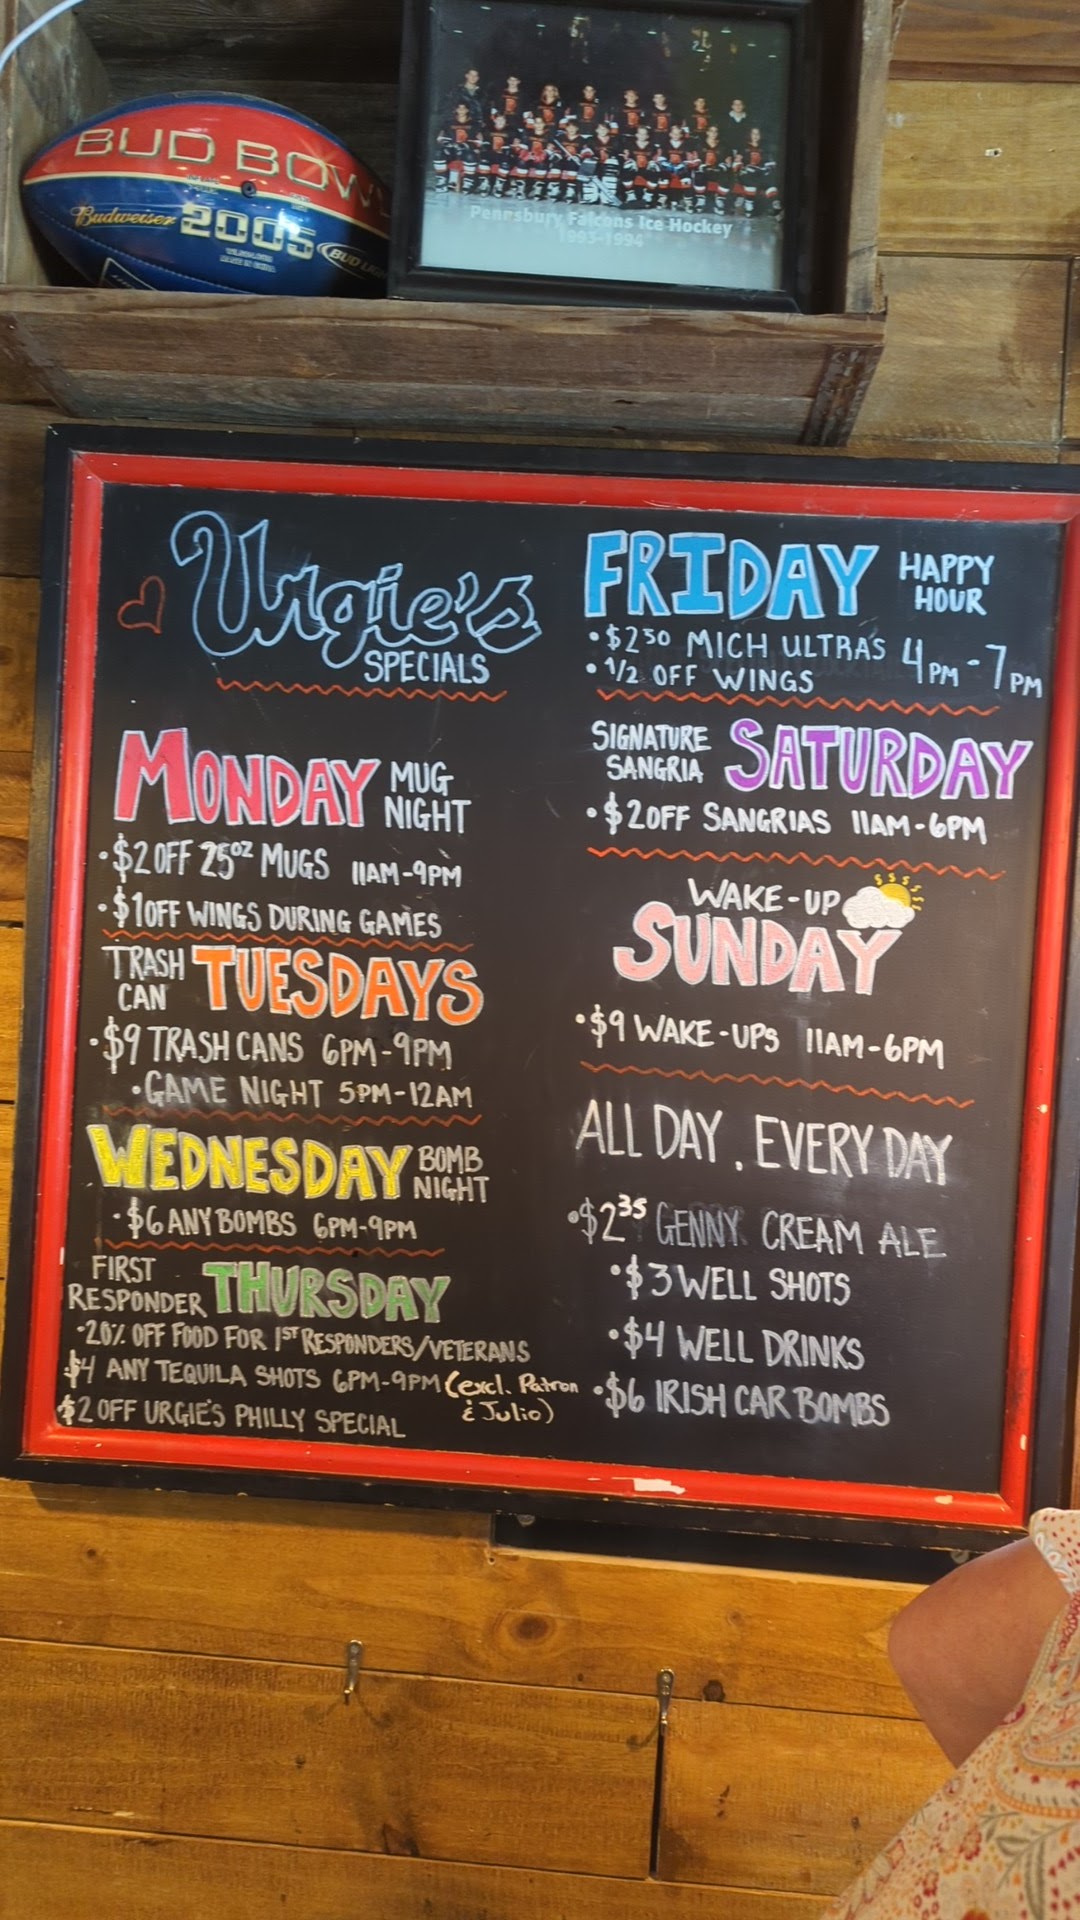 BUD BOWL
Budweiser 2005 BUD LIGHT
Pennsbury Falcons Ice Hockey
1993-1994
Urgie's
SPECIALS
MONDAY MUG NIGHT
• $2 OFF 25oz MUGS 11AM-9PM
• $1 OFF WINGS DURING GAMES
TRASH CAN TUESDAYS
• $9 TRASH CANS 6PM-9PM
• GAME NIGHT 5PM-12AM
WEDNESDAY BOMB NIGHT
• $6 ANY BOMBS 6PM-9PM
FIRST RESPONDER THURSDAY
• 20% OFF FOOD FOR 1ST RESPONDERS/VETERANS
$4 ANY TEQUILA SHOTS 6PM-9PM (excl. Patron & Julio)
$2 OFF URGIE'S PHILLY SPECIAL
FRIDAY HAPPY HOUR
• $2 50 MICH ULTRA'S 4PM-7PM
• 1/2 OFF WINGS
SIGNATURE SANGRIA SATURDAY
• $2 OFF SANGRIAS 11AM-6PM
WAKE-UP
$$$$
SUNDAY
• $9 WAKE-UPS 11AM-6PM
ALL DAY, EVERY DAY
• $2 35 GENNY CREAM ALE
• $3 WELL SHOTS
• $4 WELL DRINKS
• $6 IRISH CAR BOMBS